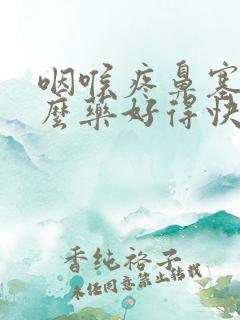 咽喉疼鼻塞
麼藥好得快
香纯裕子
未经同意禁止转载